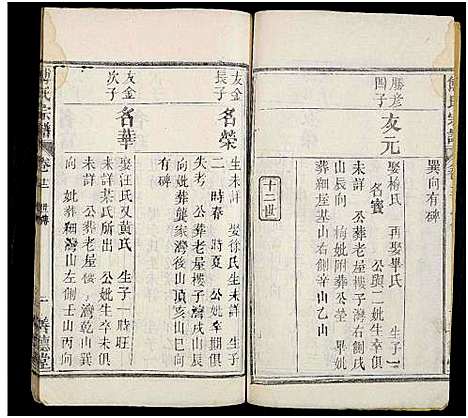 巽向有碑
勝彥
四子
友元
娶梅氏 再娶畢氏 生子二
名寶 公與二妣生卒俱
未詳 公葬老屋樓子灣右側戌
山辰向 梅妣附葬公塋 畢妣
葬細塆老屋山右側辛山乙山
十二世
友金
長子
名榮
生未詳 娶徐氏生未詳 生子
二 時春 時夏 公妣卒期俱
失考 公葬老屋樓子灣戌山辰
向妣葬龔家灣後山頂亥山巳向
有碑
友金
次子
名華
娶汪氏又黃氏 生子一時旺
未詳某氏所出 公妣生卒未俱
未詳 公葬老屋樓 灣乾山巽
向妣葬細 灣山左側壬山丙向
傅氏宗譜
卷十二
善德堂